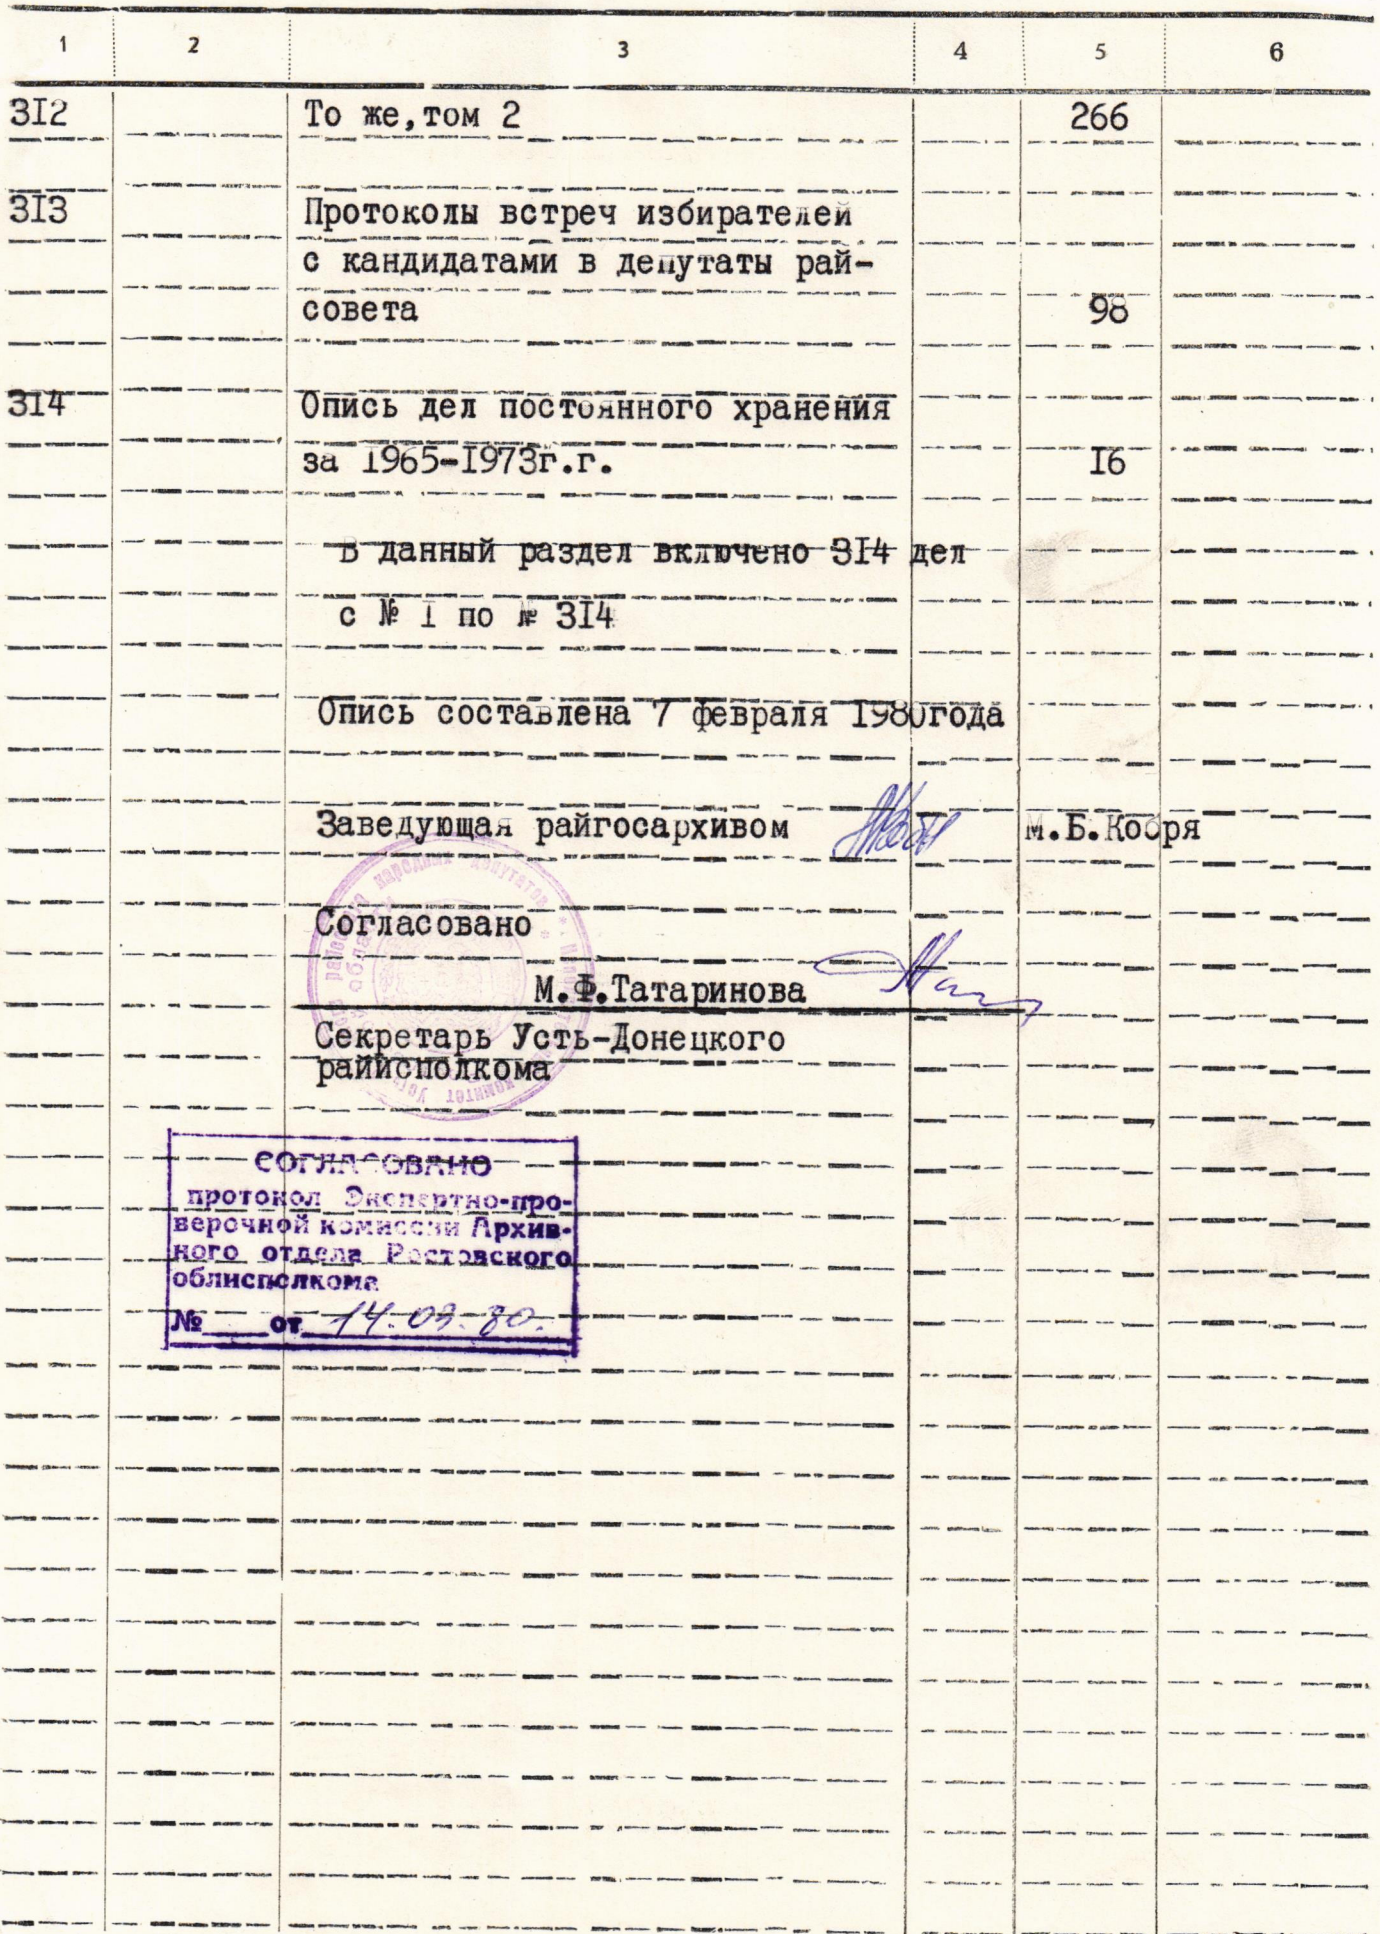 1 2 3 4 5 6
312 То же,том 2 266
313 Протоколы встреч избирателей
с кандидатами в депутаты рай-
совета 98
314 Опись дел постоянного хранения
за 1965-1973г.г. 16
В данный раздел включено 314 дел
с № 1 по № 314
Опись составлена 7 февраля 1980года
Заведующая райгосархивом М.Б.Кобря
Согласовано
М.Ф.Татаринова
Секретарь Усть-Донецкого
райисполкома
народных депутатов
комитет Усть
СОГЛАСОВАНО
протокол Экспертно-про-
верочной комиссии Архив-
ного отдела Ростовского
облисполкома
№ от 14.03.80.